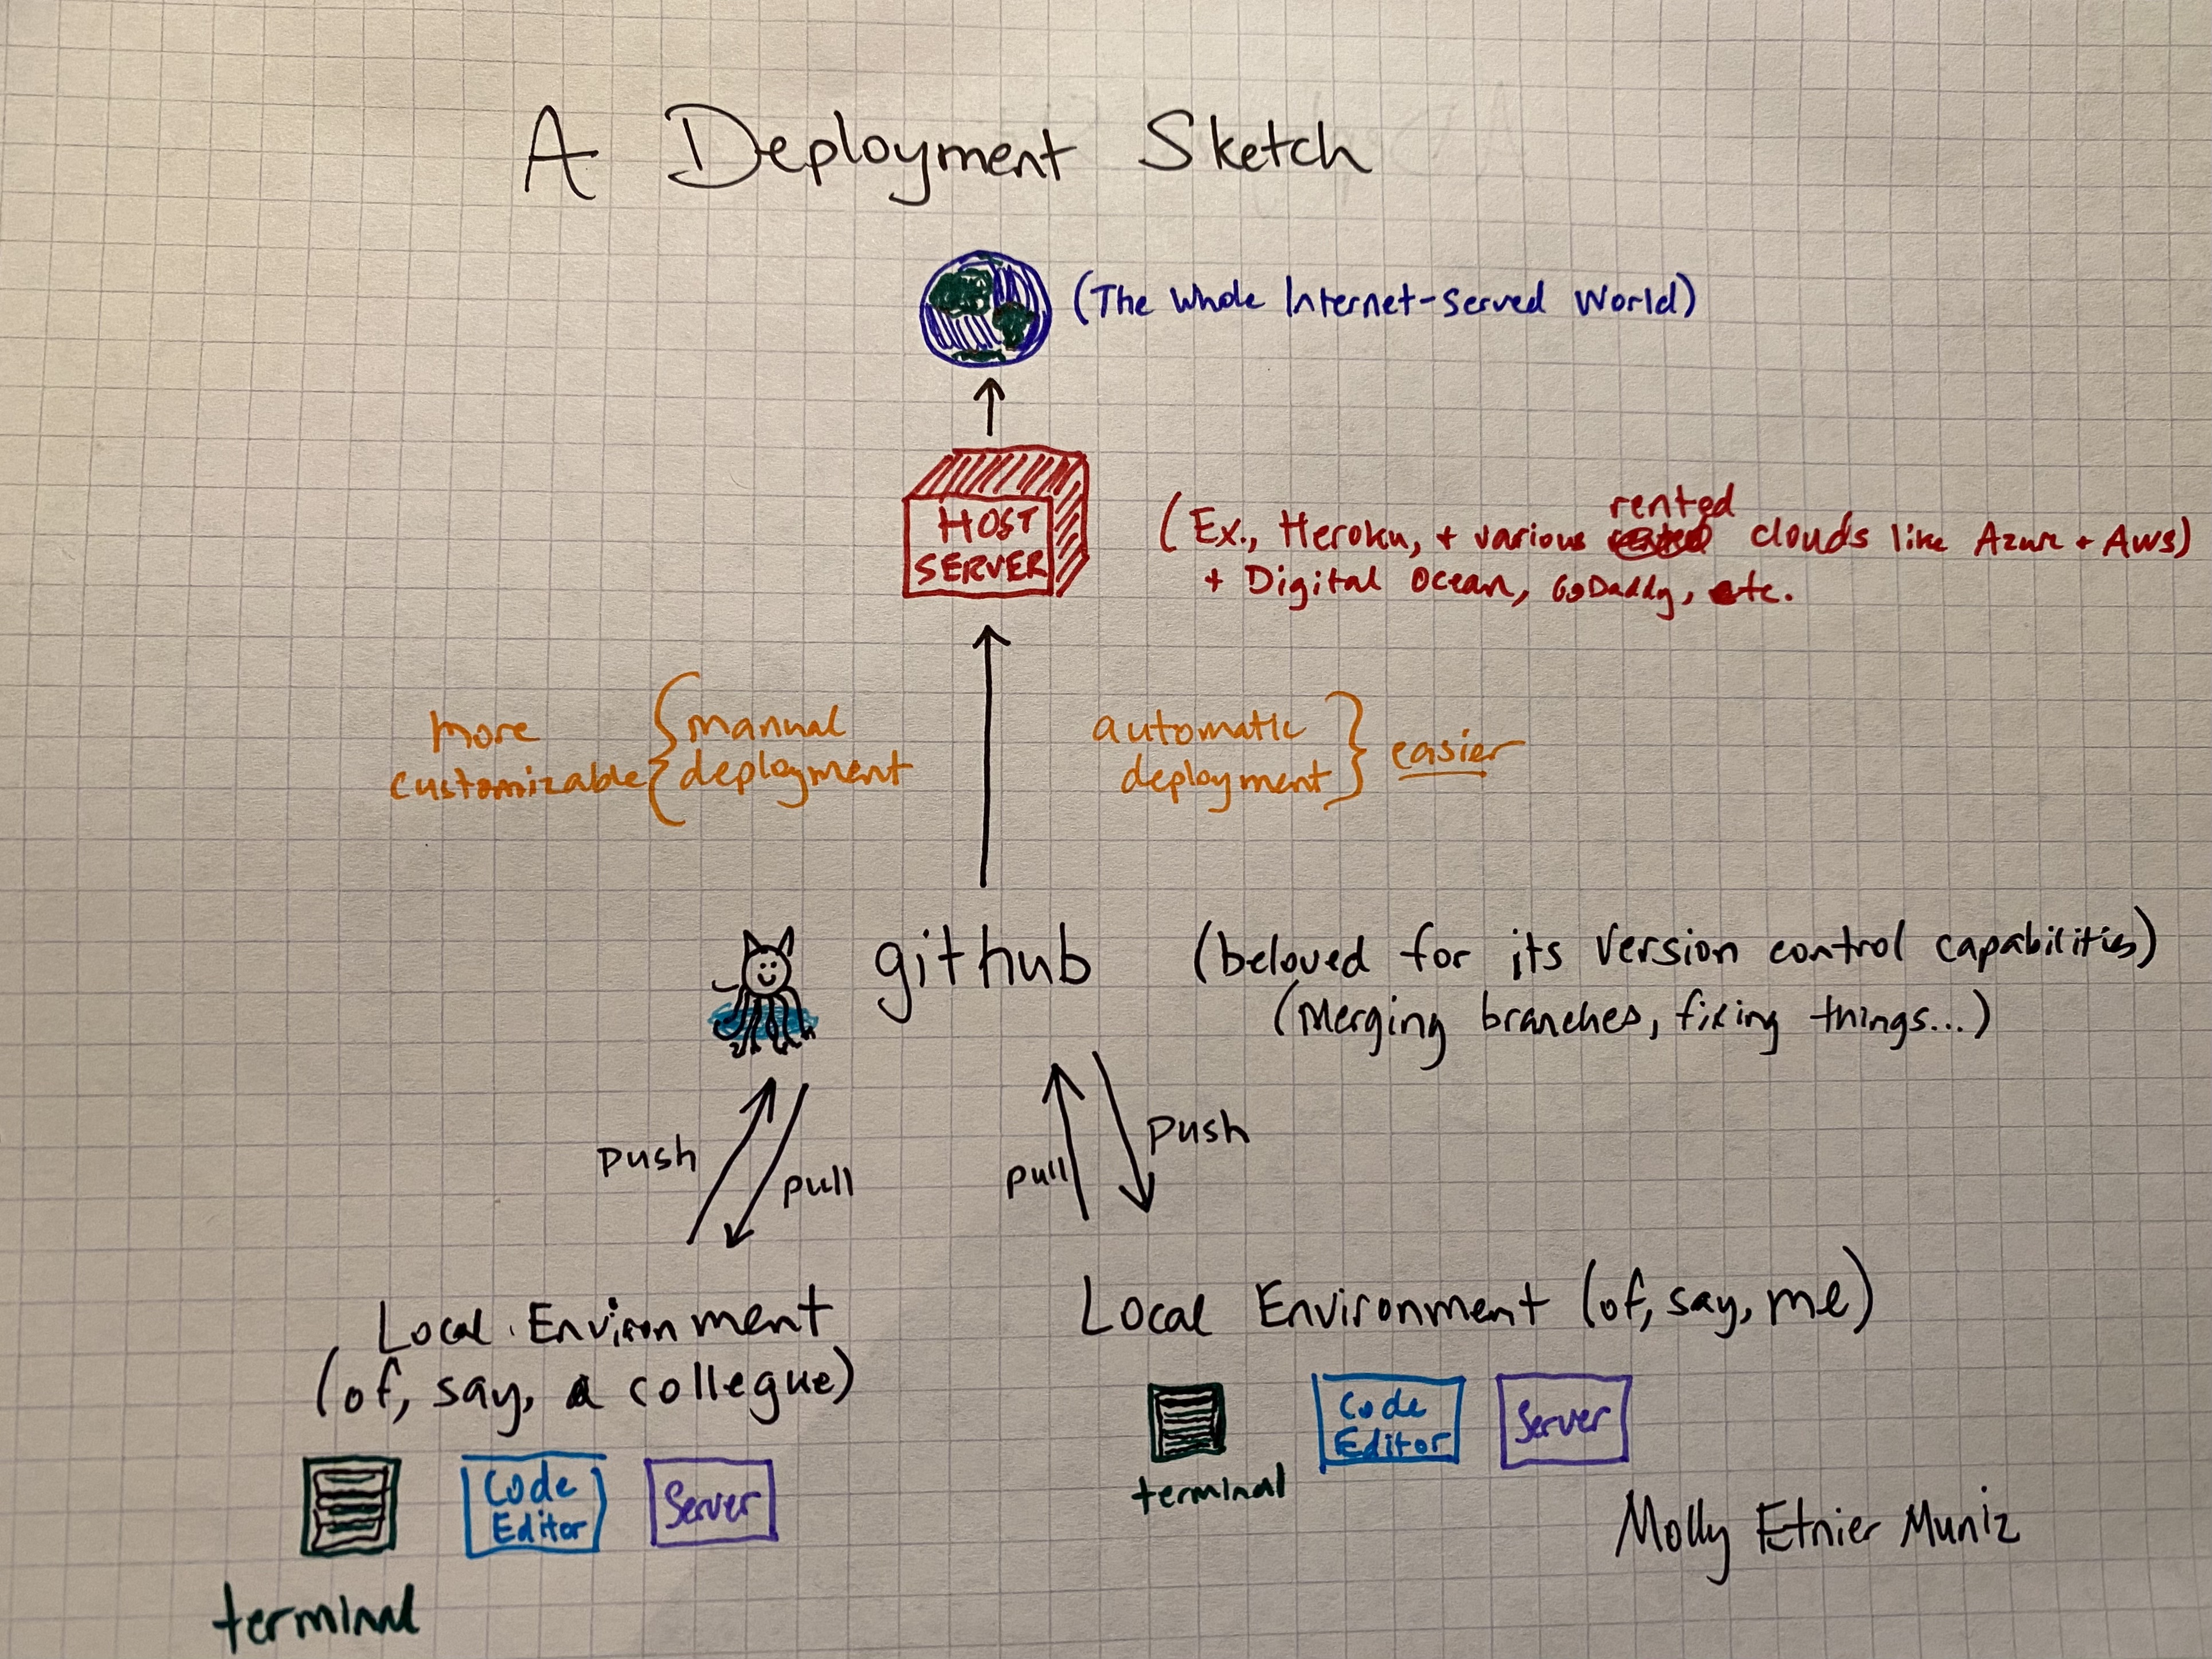 A Deployment Sketch
(The Whole Internet-Served World)
HOST
SERVER
rented
(Ex., Heroku, + various clouds like Azure + AWS)
+ Digital Ocean, GoDaddy, etc.
more
customizable
manual
deployment
automatic
deployment
easier
github
(beloved for its version control capabilities)
(Merging branches, fixing things...)
push
pull
pull
push
Local Environment
(of, say, a collegue)
Local Environment (of, say, me)
Code
Editor
Server
terminal
Code
Editor
Server
terminal
Molly Etnier Muniz